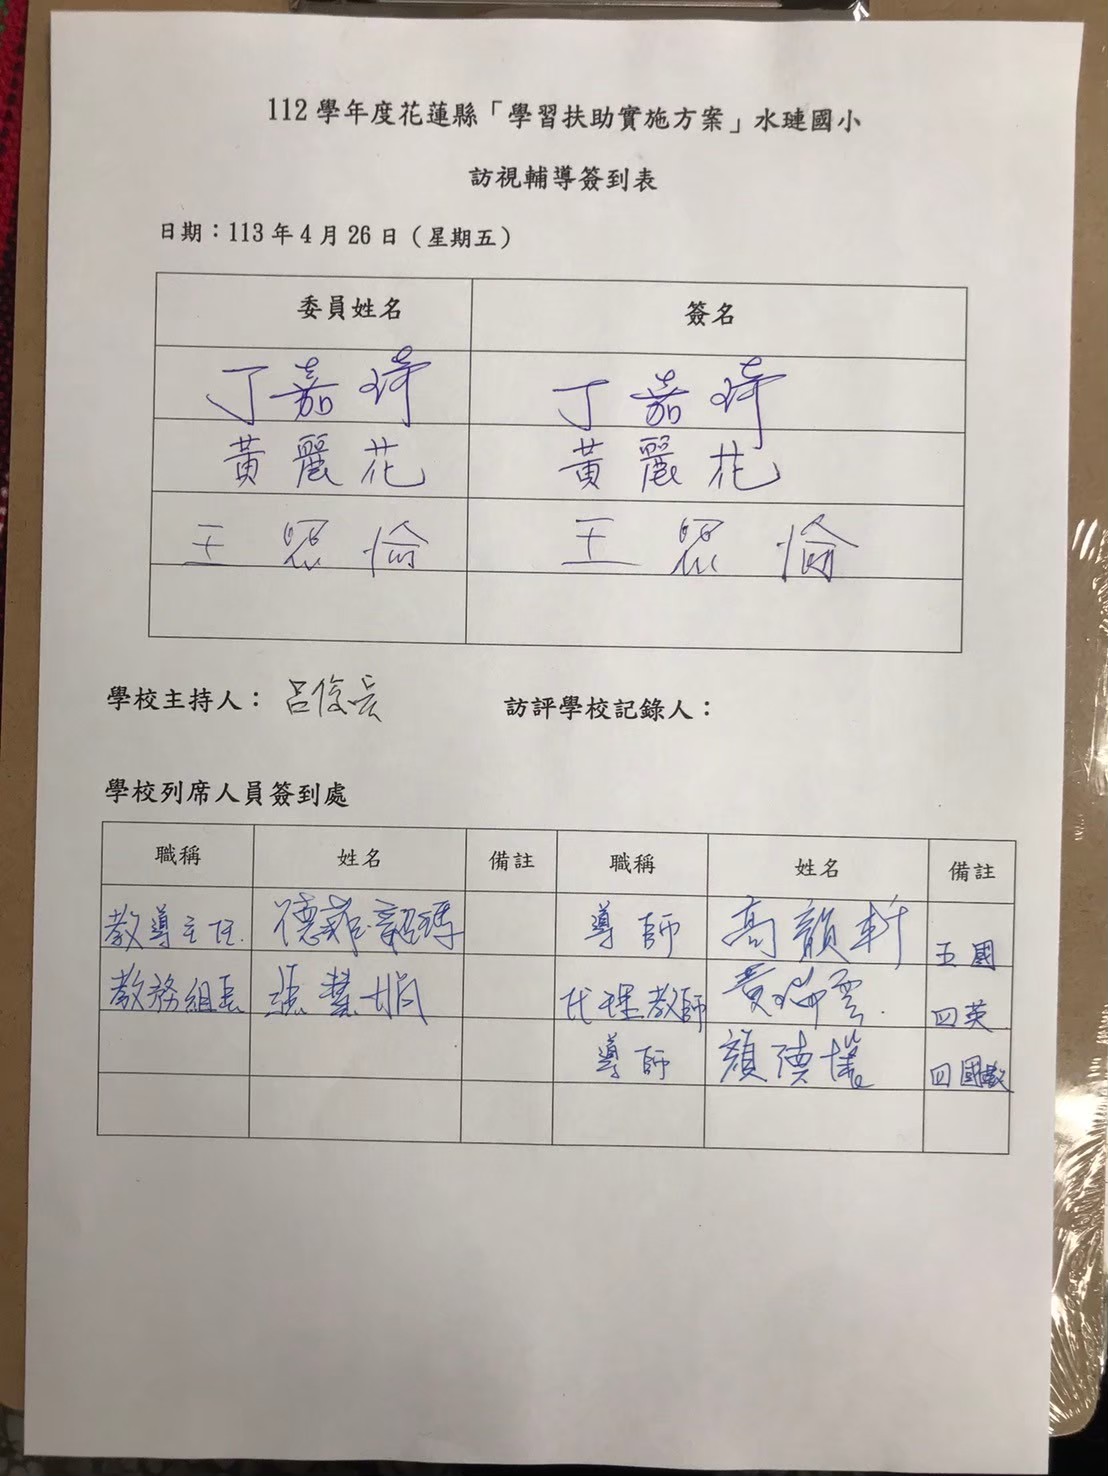 112 學年度花蓮縣「學習扶助實施方案」水璉國小
訪視輔導簽到表
日期：113 年 4 月 26 日（星期五）
委員姓名 簽名
丁嘉琦 丁嘉琦
黃麗花 黃麗花
王 愉 王 愉
學校主持人： 呂俊長 訪評學校記錄人：
學校列席人員簽到處
職稱 姓名 備註 職稱 姓名 備註
教導主任 導師 高顏軒 五國
教務組長 張慧娟 代理教師 黃 雲 四英
導師 顏德 四國數